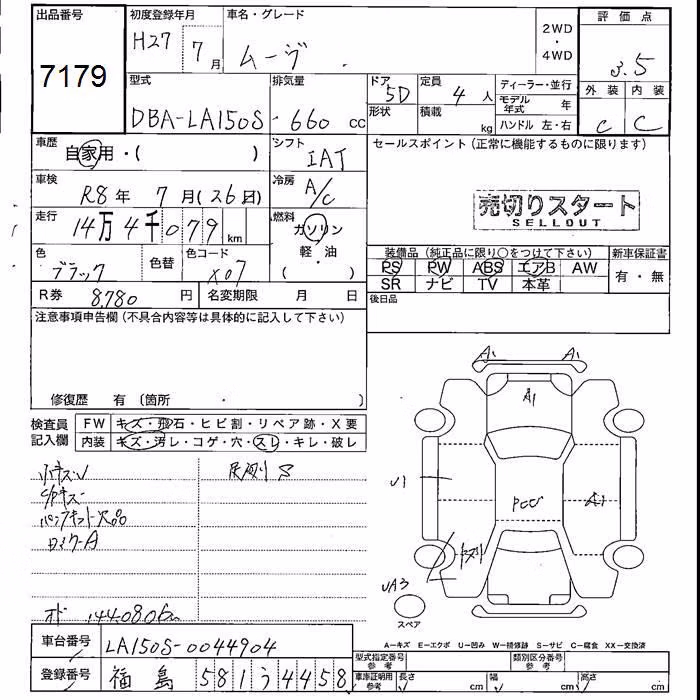 出品番号
7179
初度登録年月
H27年 7月
車名・グレード
ムーヴ
2WD
・
4WD
評価点
3.5
外装 内装
C C
型式
DBA-LA150S
排気量
660 cc
ドア
5D
形状
定員
4人
積載
kg
ディーラー・並行
モデル年式 年
ハンドル 左・右
車歴
自家用・( )
シフト
IAT
セールスポイント(正常に機能するものに限ります)
売切りスタート
SELLOUT
車検
R8年 7月(26日)
冷房
A/C
走行
14万4千079km
燃料
ガソリン
軽・油
( )
色
ブラック
色替
色コード
X07
装備品(純正品に限り○をつけて下さい)
PS PW ABS エアB AW
SR ナビ TV 本革
新車保証書
有・無
後日品
R券 8780円
名変期限 月 日
注意事項申告欄(不具合内容等は具体的に記入して下さい)
修復歴 有(箇所・ )
検査員
記入欄
FW キズ・飛石・ヒビ割・リペア跡・X要
内装 キズ・汚レ・コゲ・穴・スレ・キレ・破レ
小キズ
パンクキット欠品
オド 144080km
A1
U1
A1
PCU
UA3
スペア
A-キズ E-エクボ U-凹み W-補修跡 S-サビ C-腐食 XX-交換済
車台番号
LA150S-0044904
登録番号
福島 581う4458
型式指定番号
参考
類別区分番号
参考
車庫証明用
参考
長さ cm
幅 cm
高さ cm